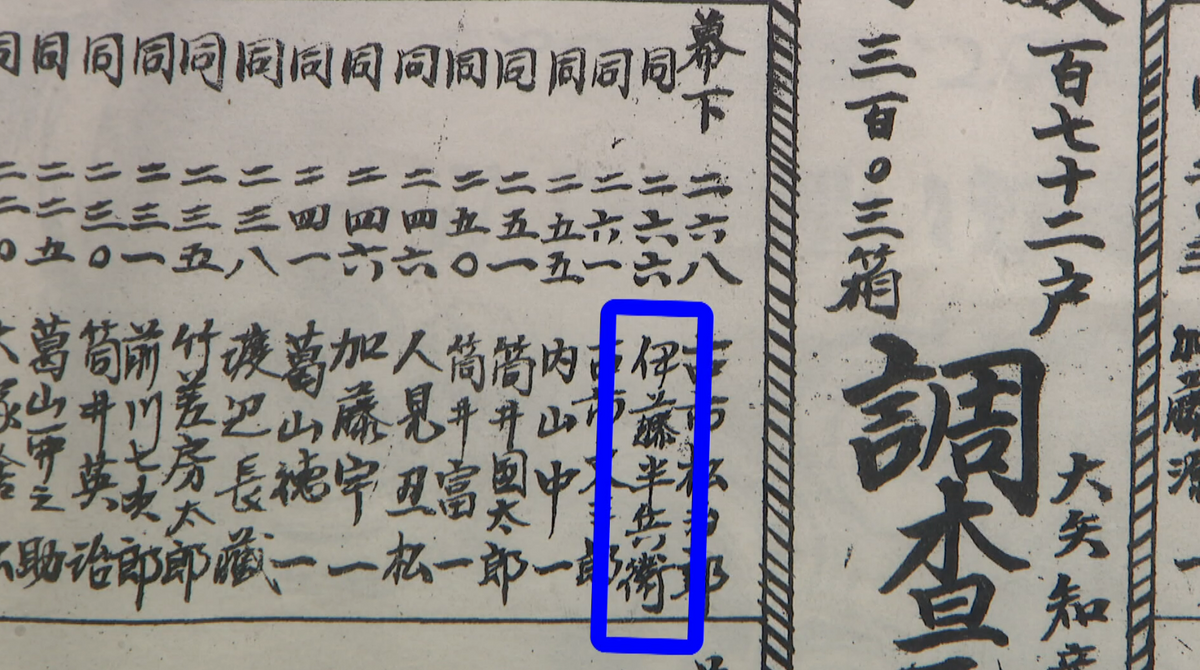 加藤
百七十二戸
大矢知
三百〇三箱
調査
幕下 二六八 古市松治郎
同 二六六 伊藤半兵衛
同 二六一 古市又三郎
同 二五五 内山中一
同 二五一 筒井國太郎
同 二五〇 筒井富一
同 二四六 人見丑松
同 二四六 加藤宇一
同 二四一 葛山德一
同 二三八 渡辺長藏
同 二三五 竹差房太郎
同 二三一 前川七次郎
同 二三〇 筒井英治
同 二二五 葛山平之助
同 二二〇